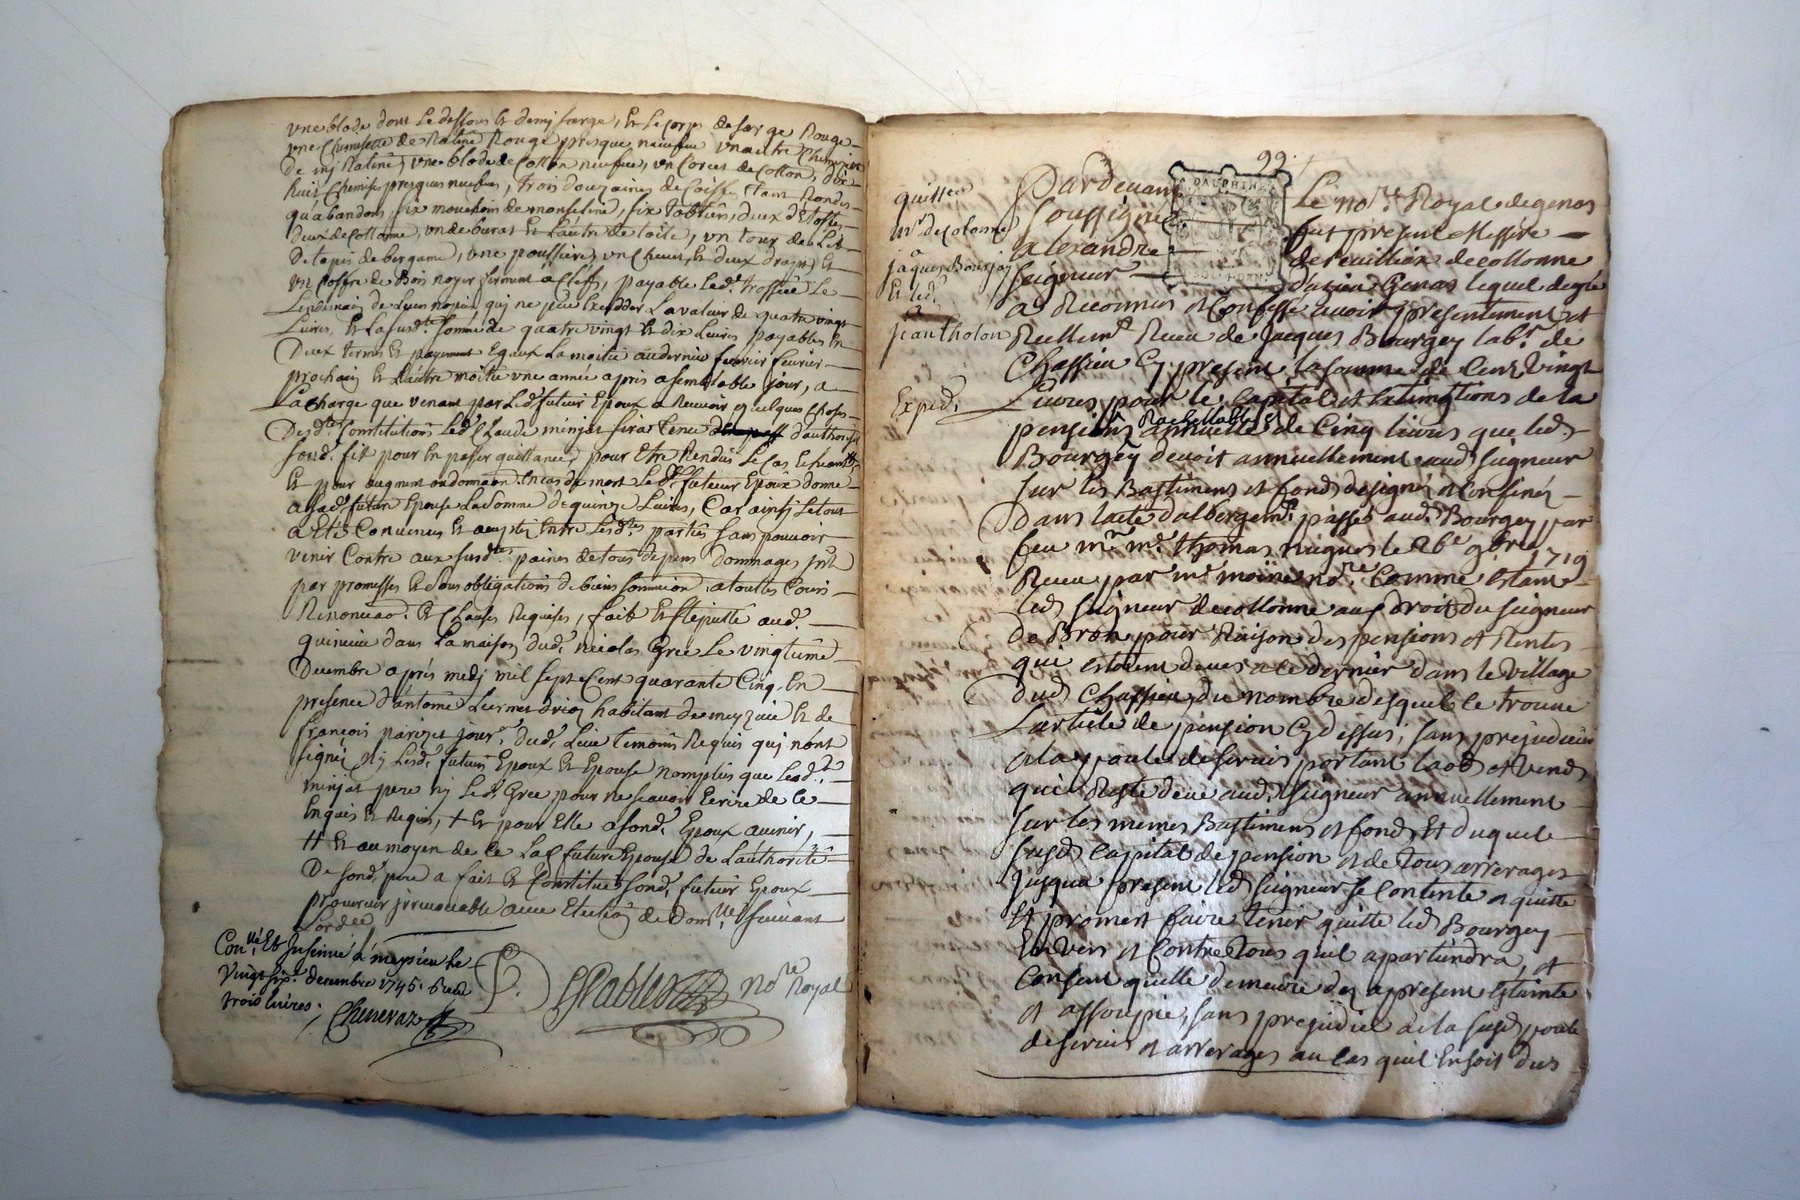 une blode dont le dessous est demj sarge, et le corps de sarge Rouge
une Chemisette de Ratine Rouge presque neufve une autre Chemisette
de mj Ratine, une blode de Cotton neufve, un Corset de Cotton, dix
huit Chemises presques neufves, trois douzaines de Coiffe tant Rondes
qu'abandons, six mouchoirs de monseline, six tabliers, deux d'Etoffe
deux de Cottonne, un de burat et l'autre de toile, un tour de Lit
de tapis de bergame, une poussiere, un Chevet, et deux draps, et
un Coffre de Bois noyer fermant a Clefs, payable led. trossel le
Lendemain de leurs nopces, qui ne peut Exceder la valeur de quatre vingt
Livres, Et la susd.te somme de quatre vingt et dix Livres payables En
Deux termes et payement Egaux La moitié au dernier fevrier
prochain Et L'autre moitié une année apres a semblable jour, a
La Charge que venant par Led. futur Epoux a Recevoir quelques choses
Desd.tes Constitutions led. Claude minjat sera tenu d'authoriser
sond. fils pour En passer quittance, pour Etre Rendus le Cas Echeant
Et pour augment ou donnaõn En cas de mort Led. futeur Epoux donne
a Lad. future Epouse La somme de quinze Livres, Car ainsj le tout
a Eté Convenus Et accepté Entre Lesd.tes parties sans pouvoir
venir Contre aux susd.tes paines de tous depens Dommages
par promesses Et sous obligations de biens soumission a toutes Cours
Renonciaõ. Et Clauses Requises, fait Et stipullé aud.
quincieu dans La maison dud. nicolas Grée Le vingtieme
Decembre après medj mil sept Cent quarante Cinq. En
presence d'antoine habitant de meyzieu Et de
francois parizet jour.r dud. Lieu temoins Requis quj n'ont
signé nj Lesd. futurs Epoux Et Epouse nomplus que Led.
minjat pere nj Led. Grée pour ne scavoir Ecrire de ce
Enquis Et Requis, + Et pour Elle a sond. Epoux avenir,
++ Et au moyen de ce Lad. future Epouse de L'authorité
De sond. pere a fait Et Constitué sond. futur Epoux
procureur irrevocable avec Election de Dom.lle suivant
L'ordce
Con.llé Et Insinué à meysieu le
Vingt six.e decembre 1745. Receu
trois livres.
Cheneraz
no.re Royal
99.
quittce
Mr. de Colonne
a
jaques Bourgey
Et led.
a
jean tholon
Exped.
DAUPHINE
Pardevant Le no.re Royal de genas
soussigné fut present Messire
alexandre de collonne
seigneur Genas lequel de gré
a Reconnu et Confessé avoir presentement et
Reellem.t Receu de Jacques Bourgey lab.r de
Chassieu Cy present la somme de Cent Vingt
Livres pour le Capital et Extinctions de la
pension annuelle Rachettable de Cinq livres que led.
Bourgey devoit annuellement aud. seigneur
sur les Bastimens et fonds designés et Confinés
Dans l'acte d'albergem.t passé aud. Bourgey par
feu mr. me. thomas le 26e 9bre 1719
Receu par me. moine no.re Comme Estant
led. seigneur de collonne aux droits du seigneur
de Bron pour Raison des pensions et Rentes
qui Etoient deues a ce dernier dans le village
dud. Chassieu du nombre desquel se trouve
L'article de pension Cy dessus, sans prejudicier
a la poule de servis portant laods et vends
qui Reste deue aud. seigneur annuellement
sur les memes Bastimens et fonds Et duquel
susd. Capital de pension et de tous arrerages
jusqua present led. seigneur se Contente et quitte
Et promet faire tenir quitte led. Bourgey
Envers et Contre tous quil apartiendra, et
Consent quelle demeure des apresent Etainte
et assoupie, sans prejudice a la susd. poule
de servis et arrerages au cas quil En soit dus